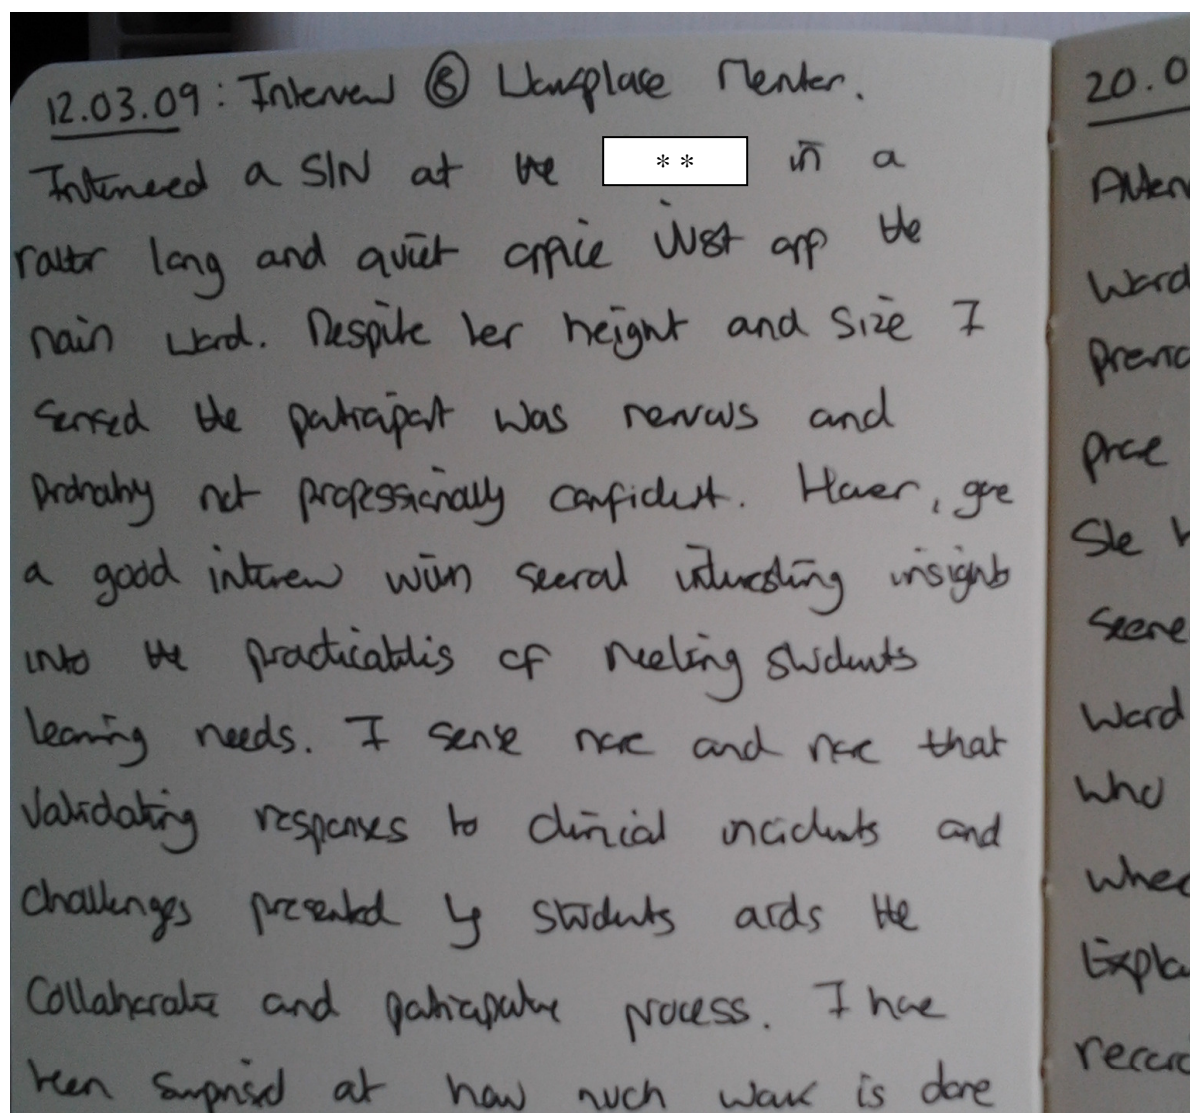 12.03.09: Interview ⑧ Workplace Mentor.
Interviewed a S/N at the ** in a
rather long and quiet office just off the
main ward. Despite her height and size I
sensed the participant was nervous and
probably not professionally confident. However, gave
a good interview with several interesting insights
into the practicalities of meeting students
learning needs. I sense more and more that
validating responses to clinical incidents and
challenges presented by students aids the
collaborative and participative process. I have
been surprised at how much work is done
20.0
Atten
Ward
Previo
She h
Ward
who
when
Expla
record